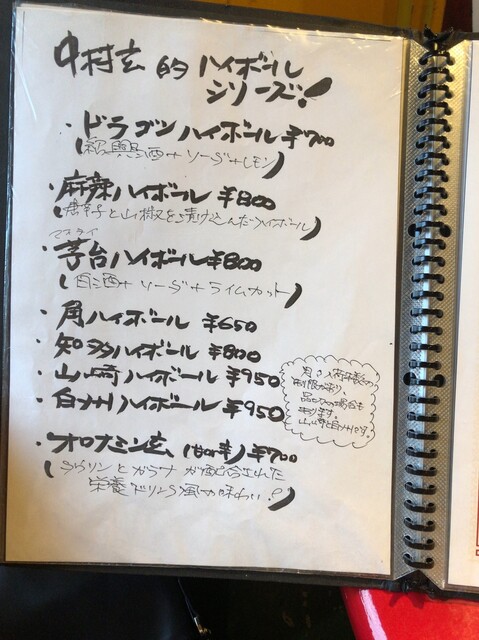 中村玄的ハイボール
シリーズ!
・ドラゴンハイボール ¥700
(紹興酒+ソーダ+レモン)
・麻辣ハイボール ¥800
(唐辛子と山椒を漬け込んだハイボール)
マオタイ
・茅台ハイボール ¥800
(白酒+ソーダ+ライムカット)
・角ハイボール ¥650
・知多ハイボール ¥800
・山崎ハイボール ¥950
・白州ハイボール ¥950
月の入荷本数の
制限があり
品切の場合も
あります。
山崎と白州です。
・オロナミン玄 ¥700
(タウリンとガラナが配合された
栄養ドリンク風の味わい!)